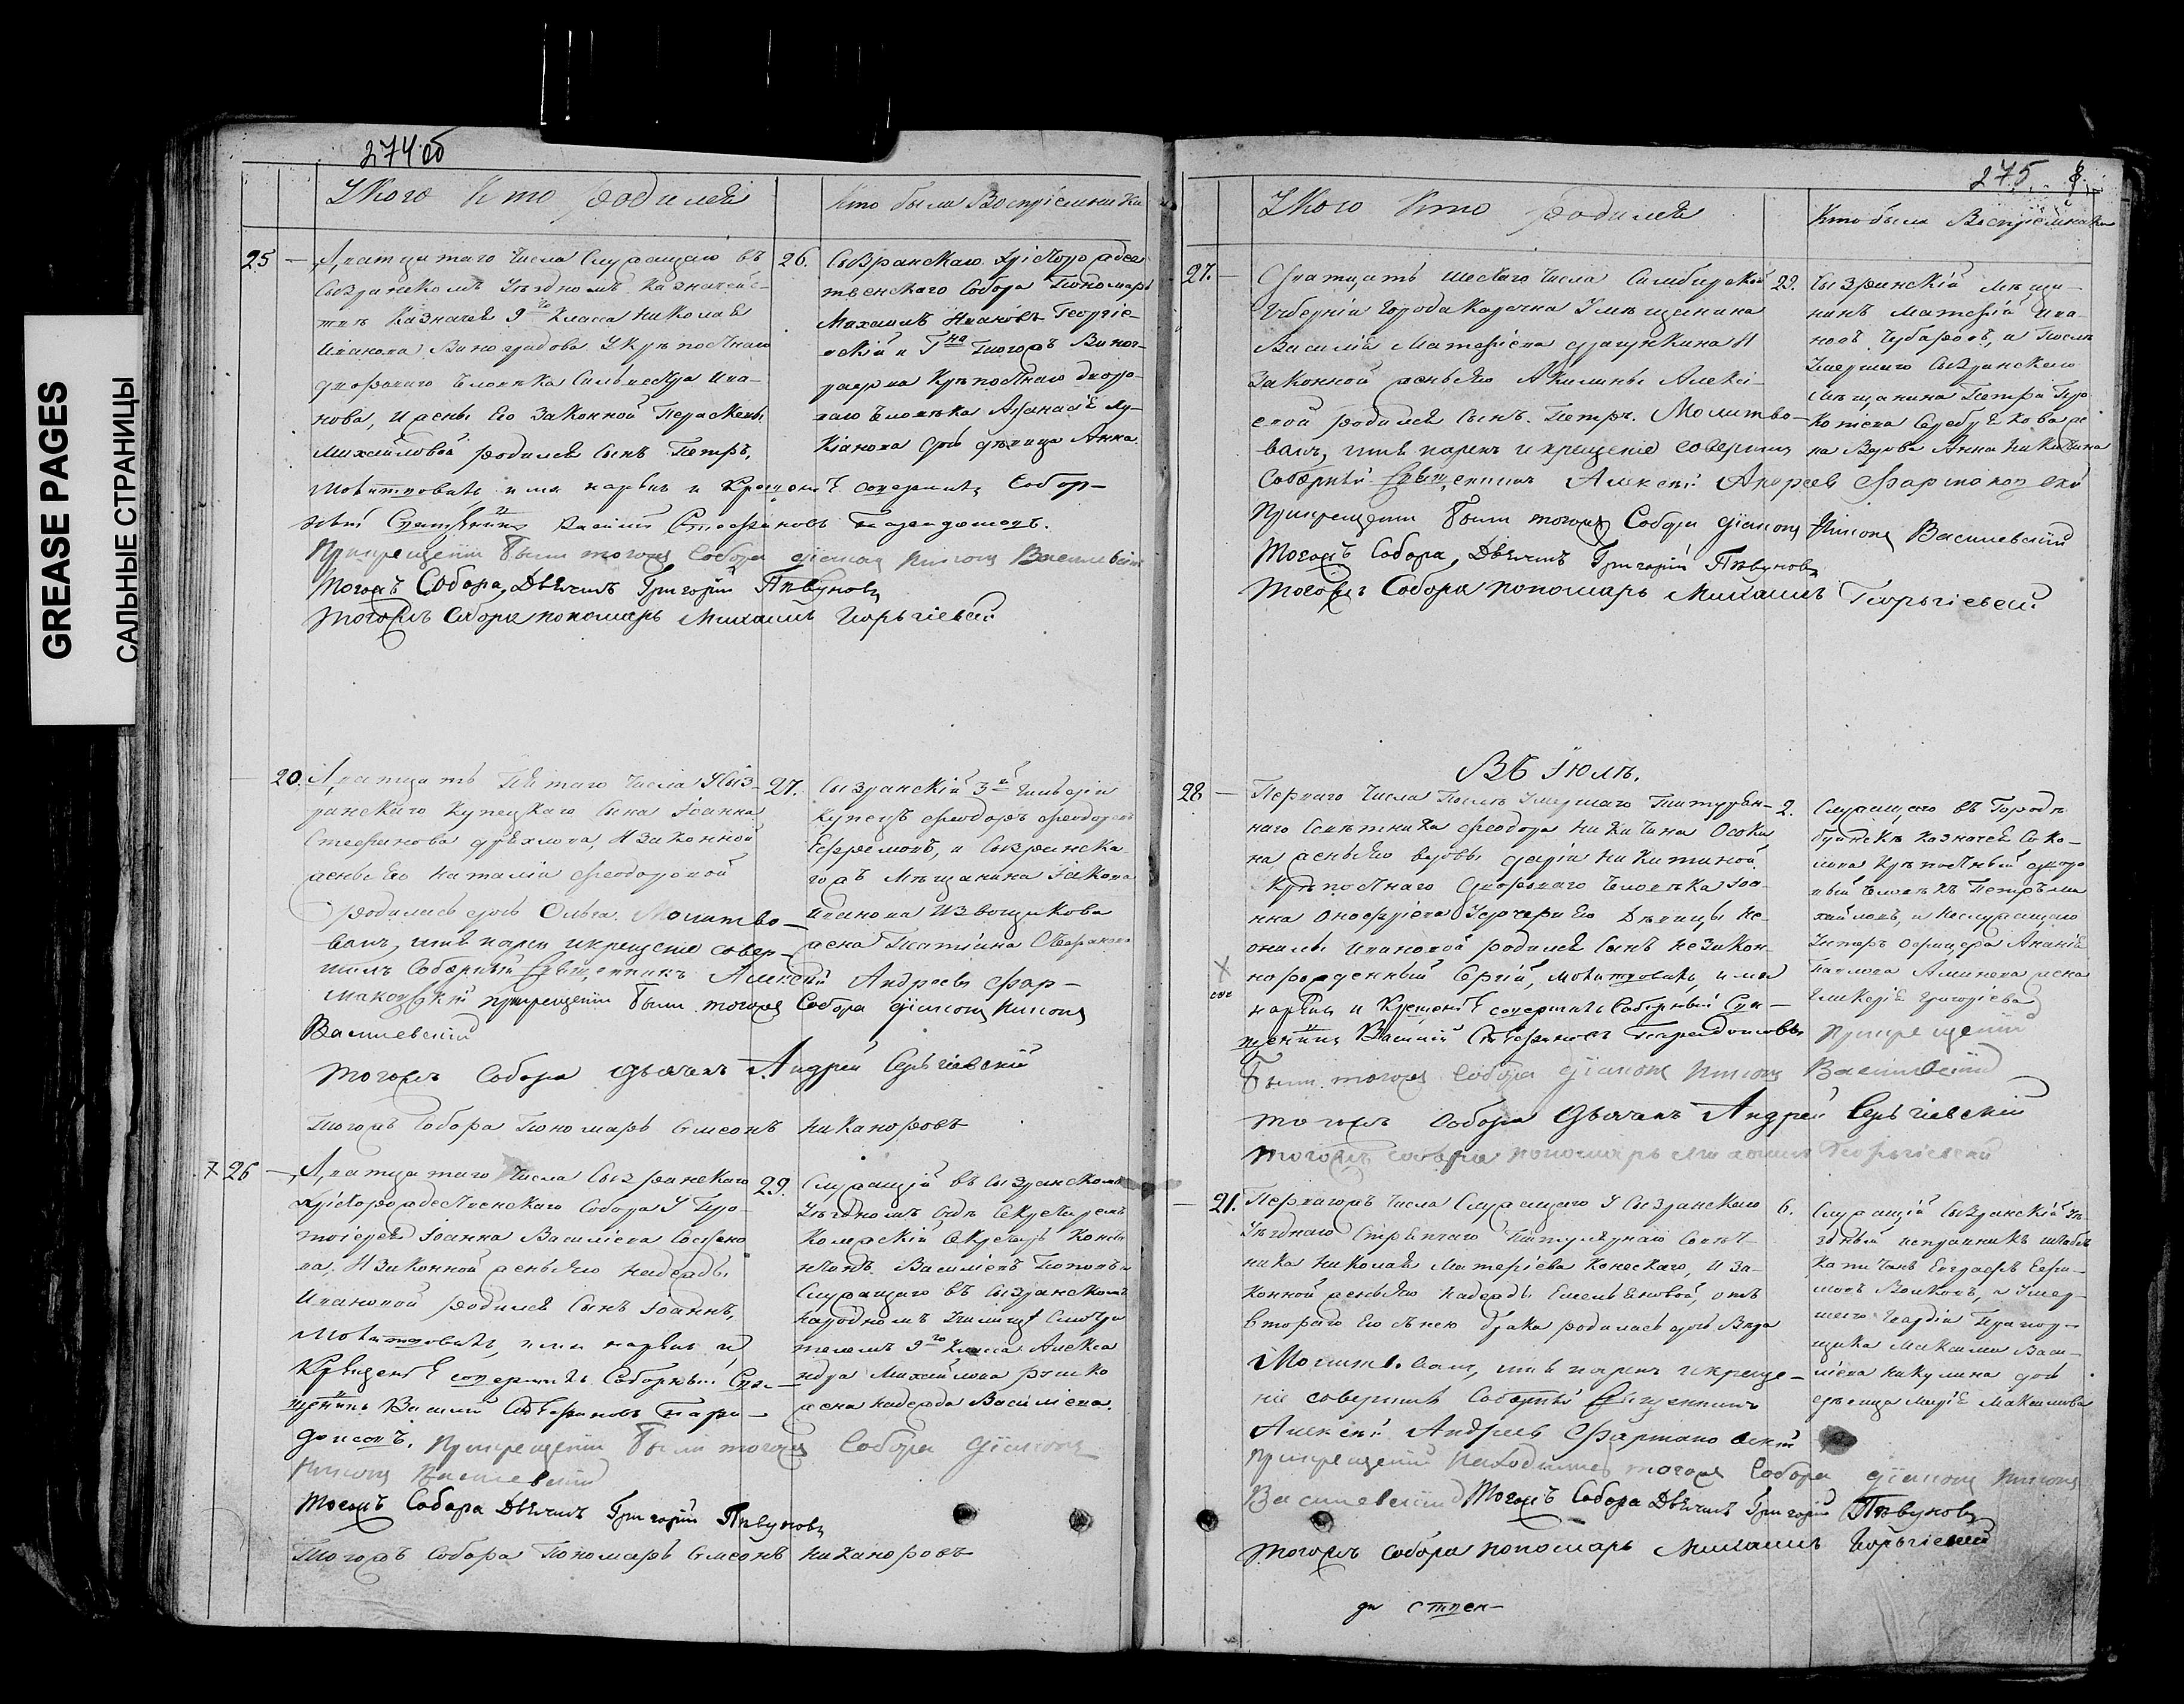 GREASE PAGES
САЛЬНЫЕ СТРАНИЦЫ
274 об
У кого кто родился
Кто были Воспріемники
25 — числа служащаго въ
Сызранскомъ Уѣздномъ Казначейс-
Казначея 9го Класса Николая
Иванова Виноградова У крѣпостнаго
двороваго человѣка Сильвестра Ива-
нова, и жены Его законной Параскевы
Михайловой родился Сынъ Петръ,
Молитвовалъ имя нарекъ и Крещеніе совершилъ Собор-
ный Василий Стефановъ
При крещеніи были тогожъ Собора діаконъ Василевскій
Тогожъ Собора Дьячекъ Григорій Пѣвуновъ
Тогожъ Собора пономарь Михаилъ Георгіевскій
26. Сызранскаго Христорождес
твенскаго Собора Пономарь
Михаилъ Ивановъ Георгіе-
вскій и Гна Виног-
радова Крѣпостнаго дворо-
ваго человѣка Лу-
кіанова дочь дѣвица Анна
20. Пятаго числа У Сыз-
ранскаго купецкаго сына Іоанна
Стефанова И законной
жены Его Наталіи Феодоровой
родилась дочь Ольга. Молитво-
валъ, имя нарекъ и крещеніе совер-
шилъ Соборный Священникъ Алексѣй Андреевъ Фар-
маковскій при крещеніи были тогожъ Собора діаконъ
Василевскій
Тогожъ Собора Дьячекъ Андрей Сергіевскій
Тогожъ Собора Пономарь Симеонъ Никаноровъ
27. Сызранскій 3й гильдіи
Купецъ Феодоръ Феодоровъ
Ефремовъ, и Сызранска-
гожъ Мѣщанина Іакова
Иванова Извощикова
жена Татіана Стефанова
26 — числа Сызранскаго
Христорождественскаго Собора У Про-
тоіерея Іоанна Василіева
И законной жены Его Надежды
Ивановой родился Сынъ Іоаннъ,
Молитвовалъ, имя нарекъ и
Крещеніе совершилъ Соборный Свя-
щенникъ Василий Стефановъ
при крещеніи были тогожъ Собора діаконъ
Василевскій
Тогожъ Собора Дьячекъ Григорій Пѣвуновъ
Тогожъ Собора Пономарь Симеонъ Никаноровъ
29. Служащій въ Сызранскомъ
Уѣздномъ Судѣ Секретаремъ
Василіевъ
Служащаго въ Сызранскомъ
народномъ училищѣ Смотри
телемъ 9го Класса Алекса
ндра Михайлова
жена Надежда Василіева.
275
У кого кто родился
Кто были Воспріемники
27. — Двадцать шестаго числа Симбирской
Губерніи города Карсуна У мѣщанина
Василія Матвѣева И
законной жены Его Акилины Алексѣ-
евой родился Сынъ Петръ. Молитво-
валъ, имя нарекъ и крещеніе совершилъ
Соборный Священникъ Алексѣй Андреевъ Фармаковскій
При крещеніи были тогожъ Собора діаконъ Василевскій
Тогожъ Собора, Дьячекъ Григорій Пѣвуновъ
Тогожъ Собора пономарь Михаилъ Георгіевскій
29. Сызранскій мѣща-
нинъ Матвѣй Ива
новъ Чубаровъ, и После
Умершаго Сызранскаго
Мѣщанина Петра Про
копіева же
на Вдова Анна Никитина
Въ Іюлѣ.
28 — Перваго числа После Умершаго Титуляр-
наго Совѣтника Феодора Никитина Осоки
на жены Его вдовы Даріи Никитиной
Крѣпостнаго двороваго человѣка Іоа-
нна Онофріева У дочери Его Дѣвицы Не-
онилы Ивановой родился Сынъ незакон-
норожденный Сергій, молитвовалъ, имя
нарекъ и Крещеніе совершилъ Соборный Свя-
щенникъ Василий Стефановъ При крещеніи
были тогожъ Собора діаконъ Василевскій
Тогожъ Собора Дьячекъ Андрей Сергіевскій
Тогожъ Собора пономарь Михаилъ Георгіевскій
2. Служащаго въ Городѣ
Буинскѣ Казначея Соко-
лова Крѣпостный дворо
вый человѣкъ Петръ Ми
хайловъ, и Неслужащаго
Унтеръ Офицера Ананія
Павлова жена
Гликерія Григоріева
21. Перваго числа Служащаго У Сызранскаго
Уѣзднаго Стряпчаго Титулярнаго Совѣт
ника Николая Матвѣева И за-
конной жены Его Надежды Емельяновой, отъ
втораго Его съ нею брака родилась дочь Вѣра
Молитвовалъ, имя нарекъ и креще-
ніе совершилъ Соборный Священникъ
Алексѣй Андреевъ Фармаковскій
при крещеніи находились тогожъ Собора діаконъ
Василевскій Тогожъ Собора Дьячекъ Григорій Пѣвуновъ
Тогожъ Собора пономарь Михаилъ Георгіевскій
6. Служащій Сызранскій Уѣ
здный исправникъ штабсъ
Капитанъ Евграфъ Ефи-
мовъ Волковъ, и Умер-
шаго Гвардіи Прапор-
щика Максима Васи-
ліева Никулина дочь
дѣвица Марія Максимова